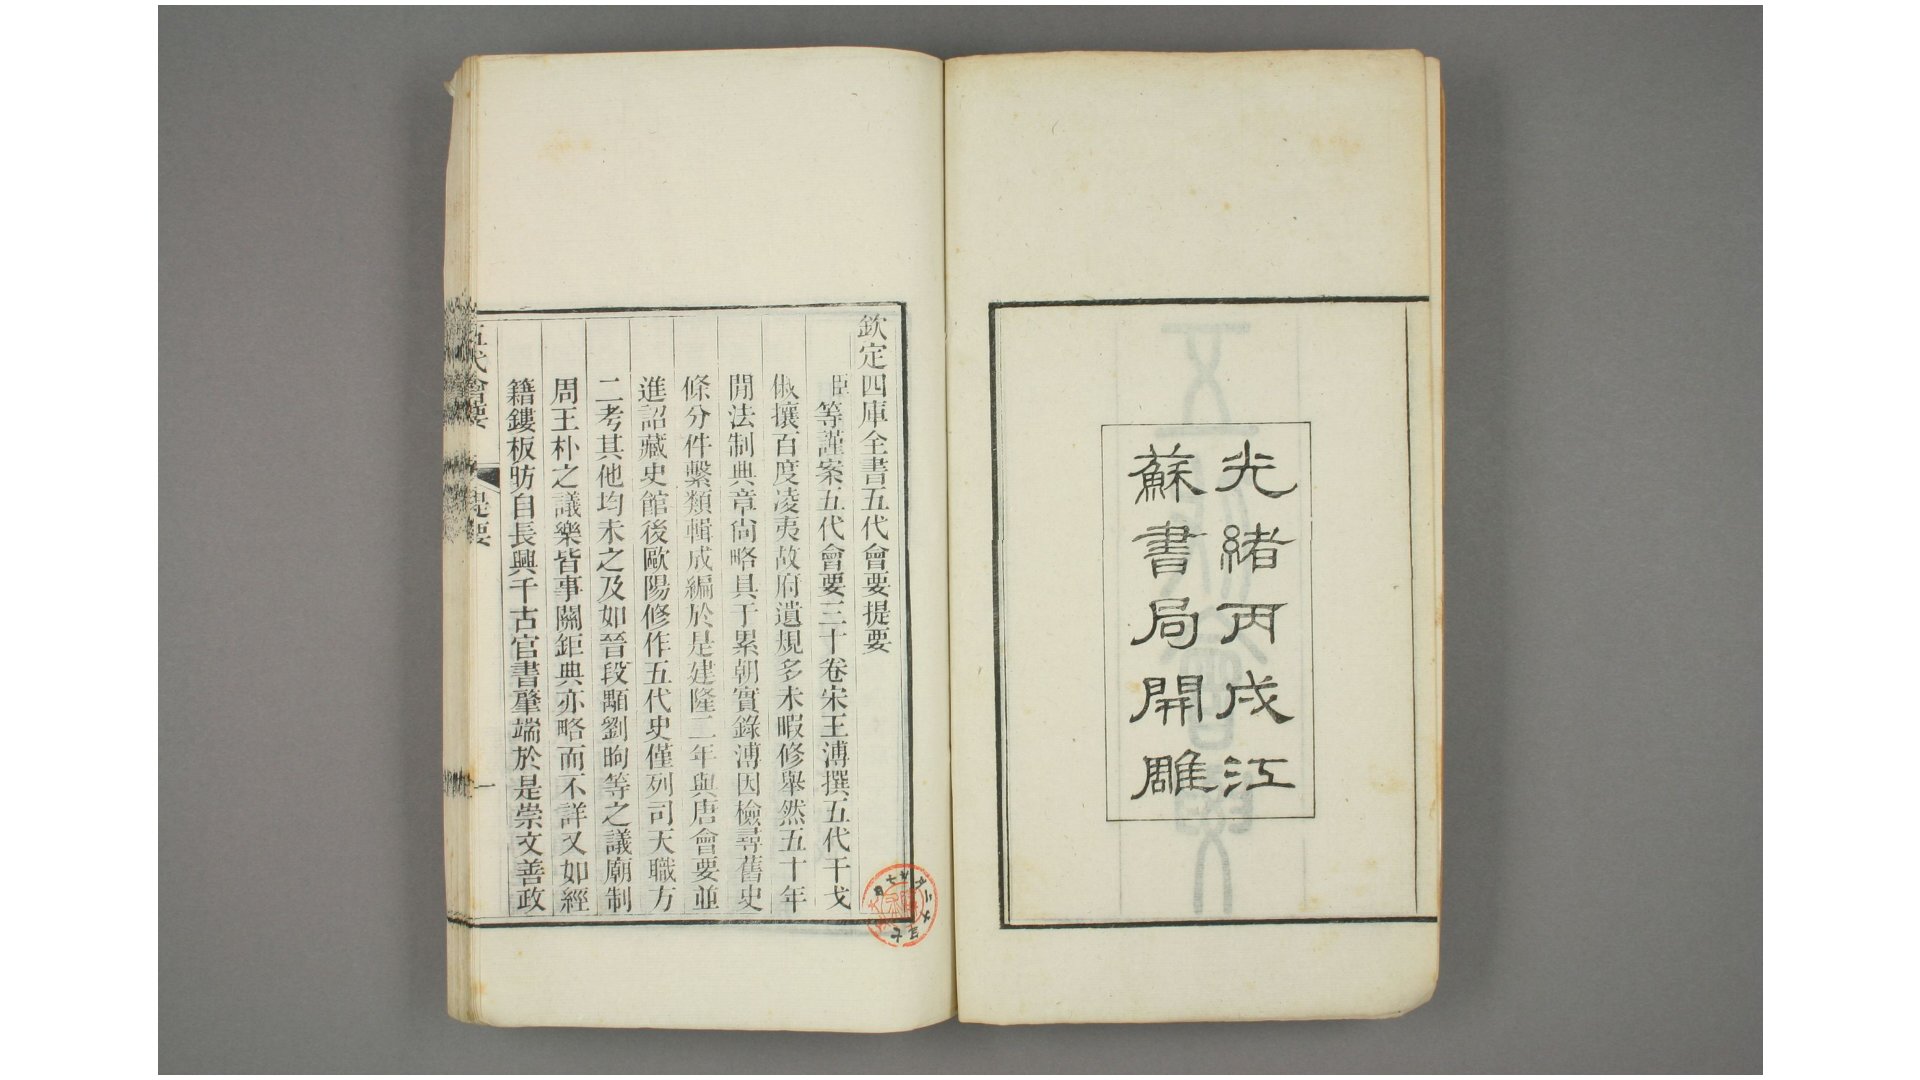 光緒丙戌江
蘇書局開雕
欽定四庫全書五代會要提要
臣等謹案五代會要三十卷宋王溥撰五代干戈
俶攘百度凌夷故府遺規多未暇修舉然五十年
閒法制典章尙略具于累朝實錄溥因檢尋舊史
條分件繫類輯成編於是建隆二年與唐會要並
進詔藏史館後歐陽修作五代史僅列司天職方
二考其他均未之及如晉段顒劉昫等之議廟制
周王朴之議樂皆事關鉅典亦略而不詳又如經
籍鏤板昉自長興千古官書肇端於是崇文善政
五代會要
提要
一